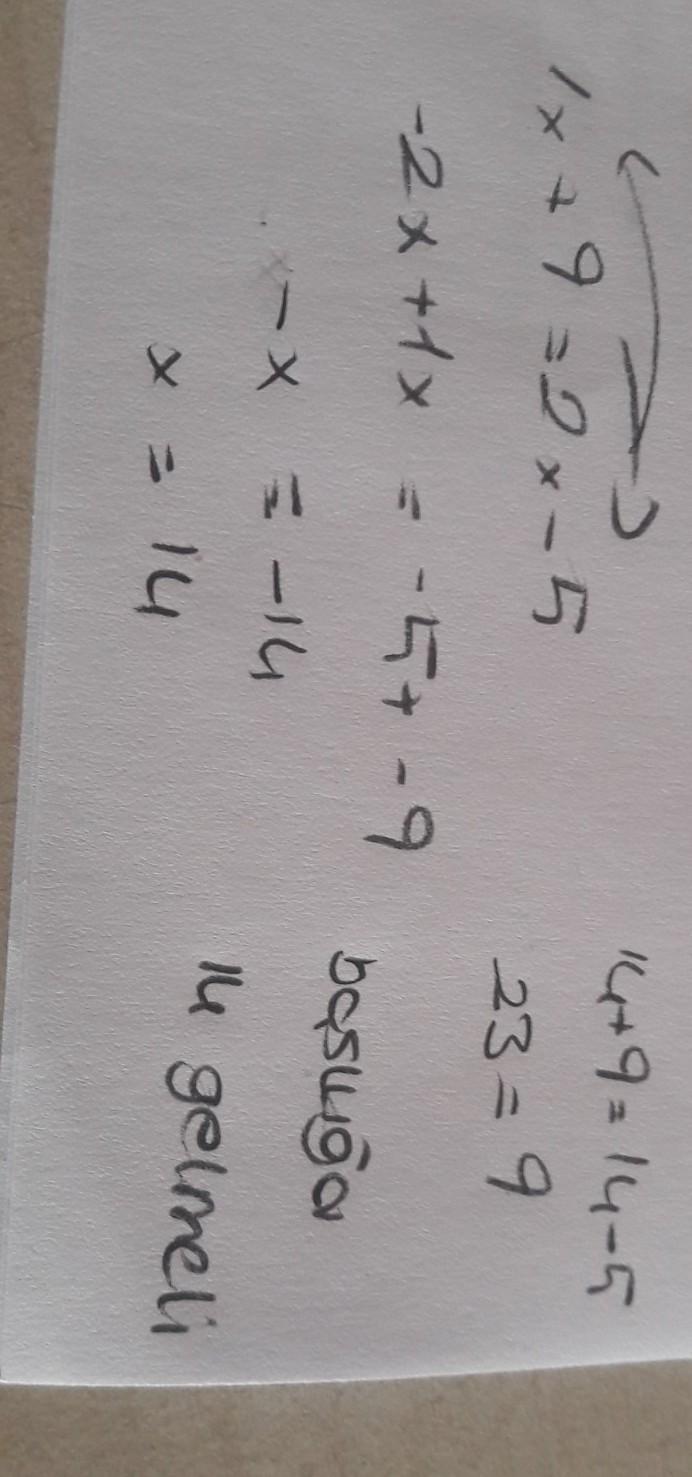 1x + 9 = 2x - 5
-2x + 1x = -5 + -9
-x = -14
x = 14
14+9 = 14-5
23 = 9
başlığa
14 gelmeli